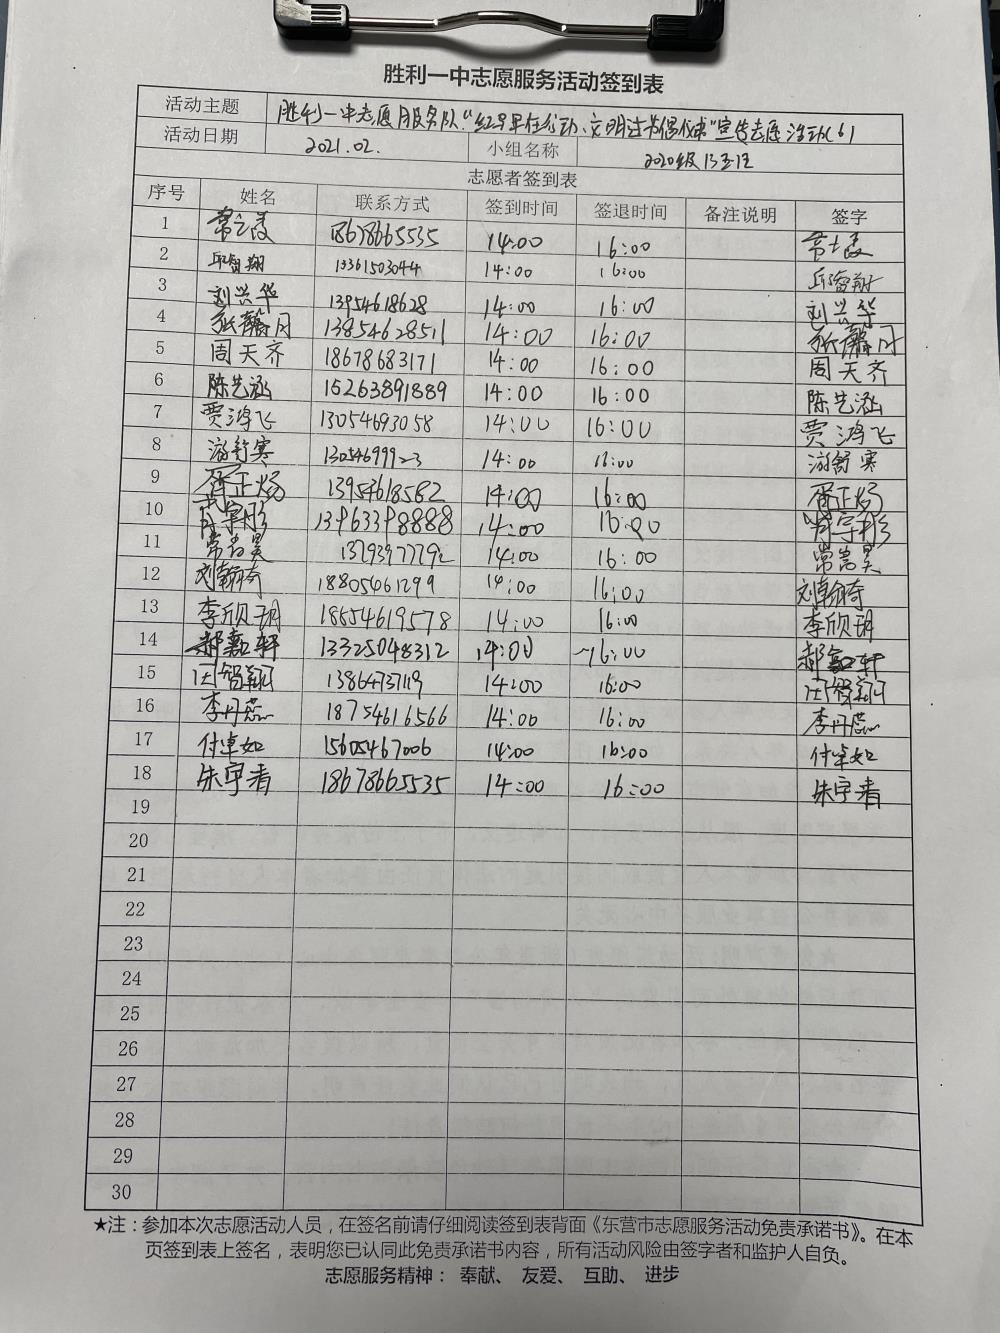 胜利一中志愿服务活动签到表
活动主题 胜利一中志愿服务队"红马甲在行动、文明过节倡议书"宣传志愿活动(6)
活动日期 2021.02. 小组名称 2020级13班
志愿者签到表
序号 姓名 联系方式 签到时间 签退时间 备注说明 签字
1 18678665535 14:00 16:00
2 邱智翔 13361503044 14:00 16:00 邱智翔
3 刘兴华 13954618628 14:00 16:00 刘兴华
4 张馨月 13854628511 14:00 16:00 张馨月
5 周天齐 18678683171 14:00 16:00 周天齐
6 陈艺涵 15263891889 14:00 16:00 陈艺涵
7 贾鸿飞 13054693058 14:00 16:00 贾鸿飞
8 游舒寒 13054699923 14:00 16:00 游舒寒
9 胥正炀 13954618582 14:00 16:00 胥正炀
10 13963398888 14:00 16:00
11 常嵩昊 13793977792 14:00 16:00 常嵩昊
12 刘翰琦 18805461299 14:00 16:00 刘翰琦
13 李欣玥 18554619578 14:00 16:00 李欣玥
14 郝嘉轩 13325048312 14:00 16:00 郝嘉轩
15 田智翔 13864737119 14:00 16:00 田智翔
16 李丹蕊 18754616566 14:00 16:00 李丹蕊
17 付卓如 15605467006 14:00 16:00 付卓如
18 朱宇清 18678665535 14:00 16:00 朱宇清
19
20
21
22
23
24
25
26
27
28
29
30
★注：参加本次志愿活动人员，在签名前请仔细阅读签到表背面《东营市志愿服务活动免责承诺书》。在本
页签到表上签名，表明您已认同此免责承诺书内容，所有活动风险由签字者和监护人自负。
志愿服务精神： 奉献、 友爱、 互助、 进步